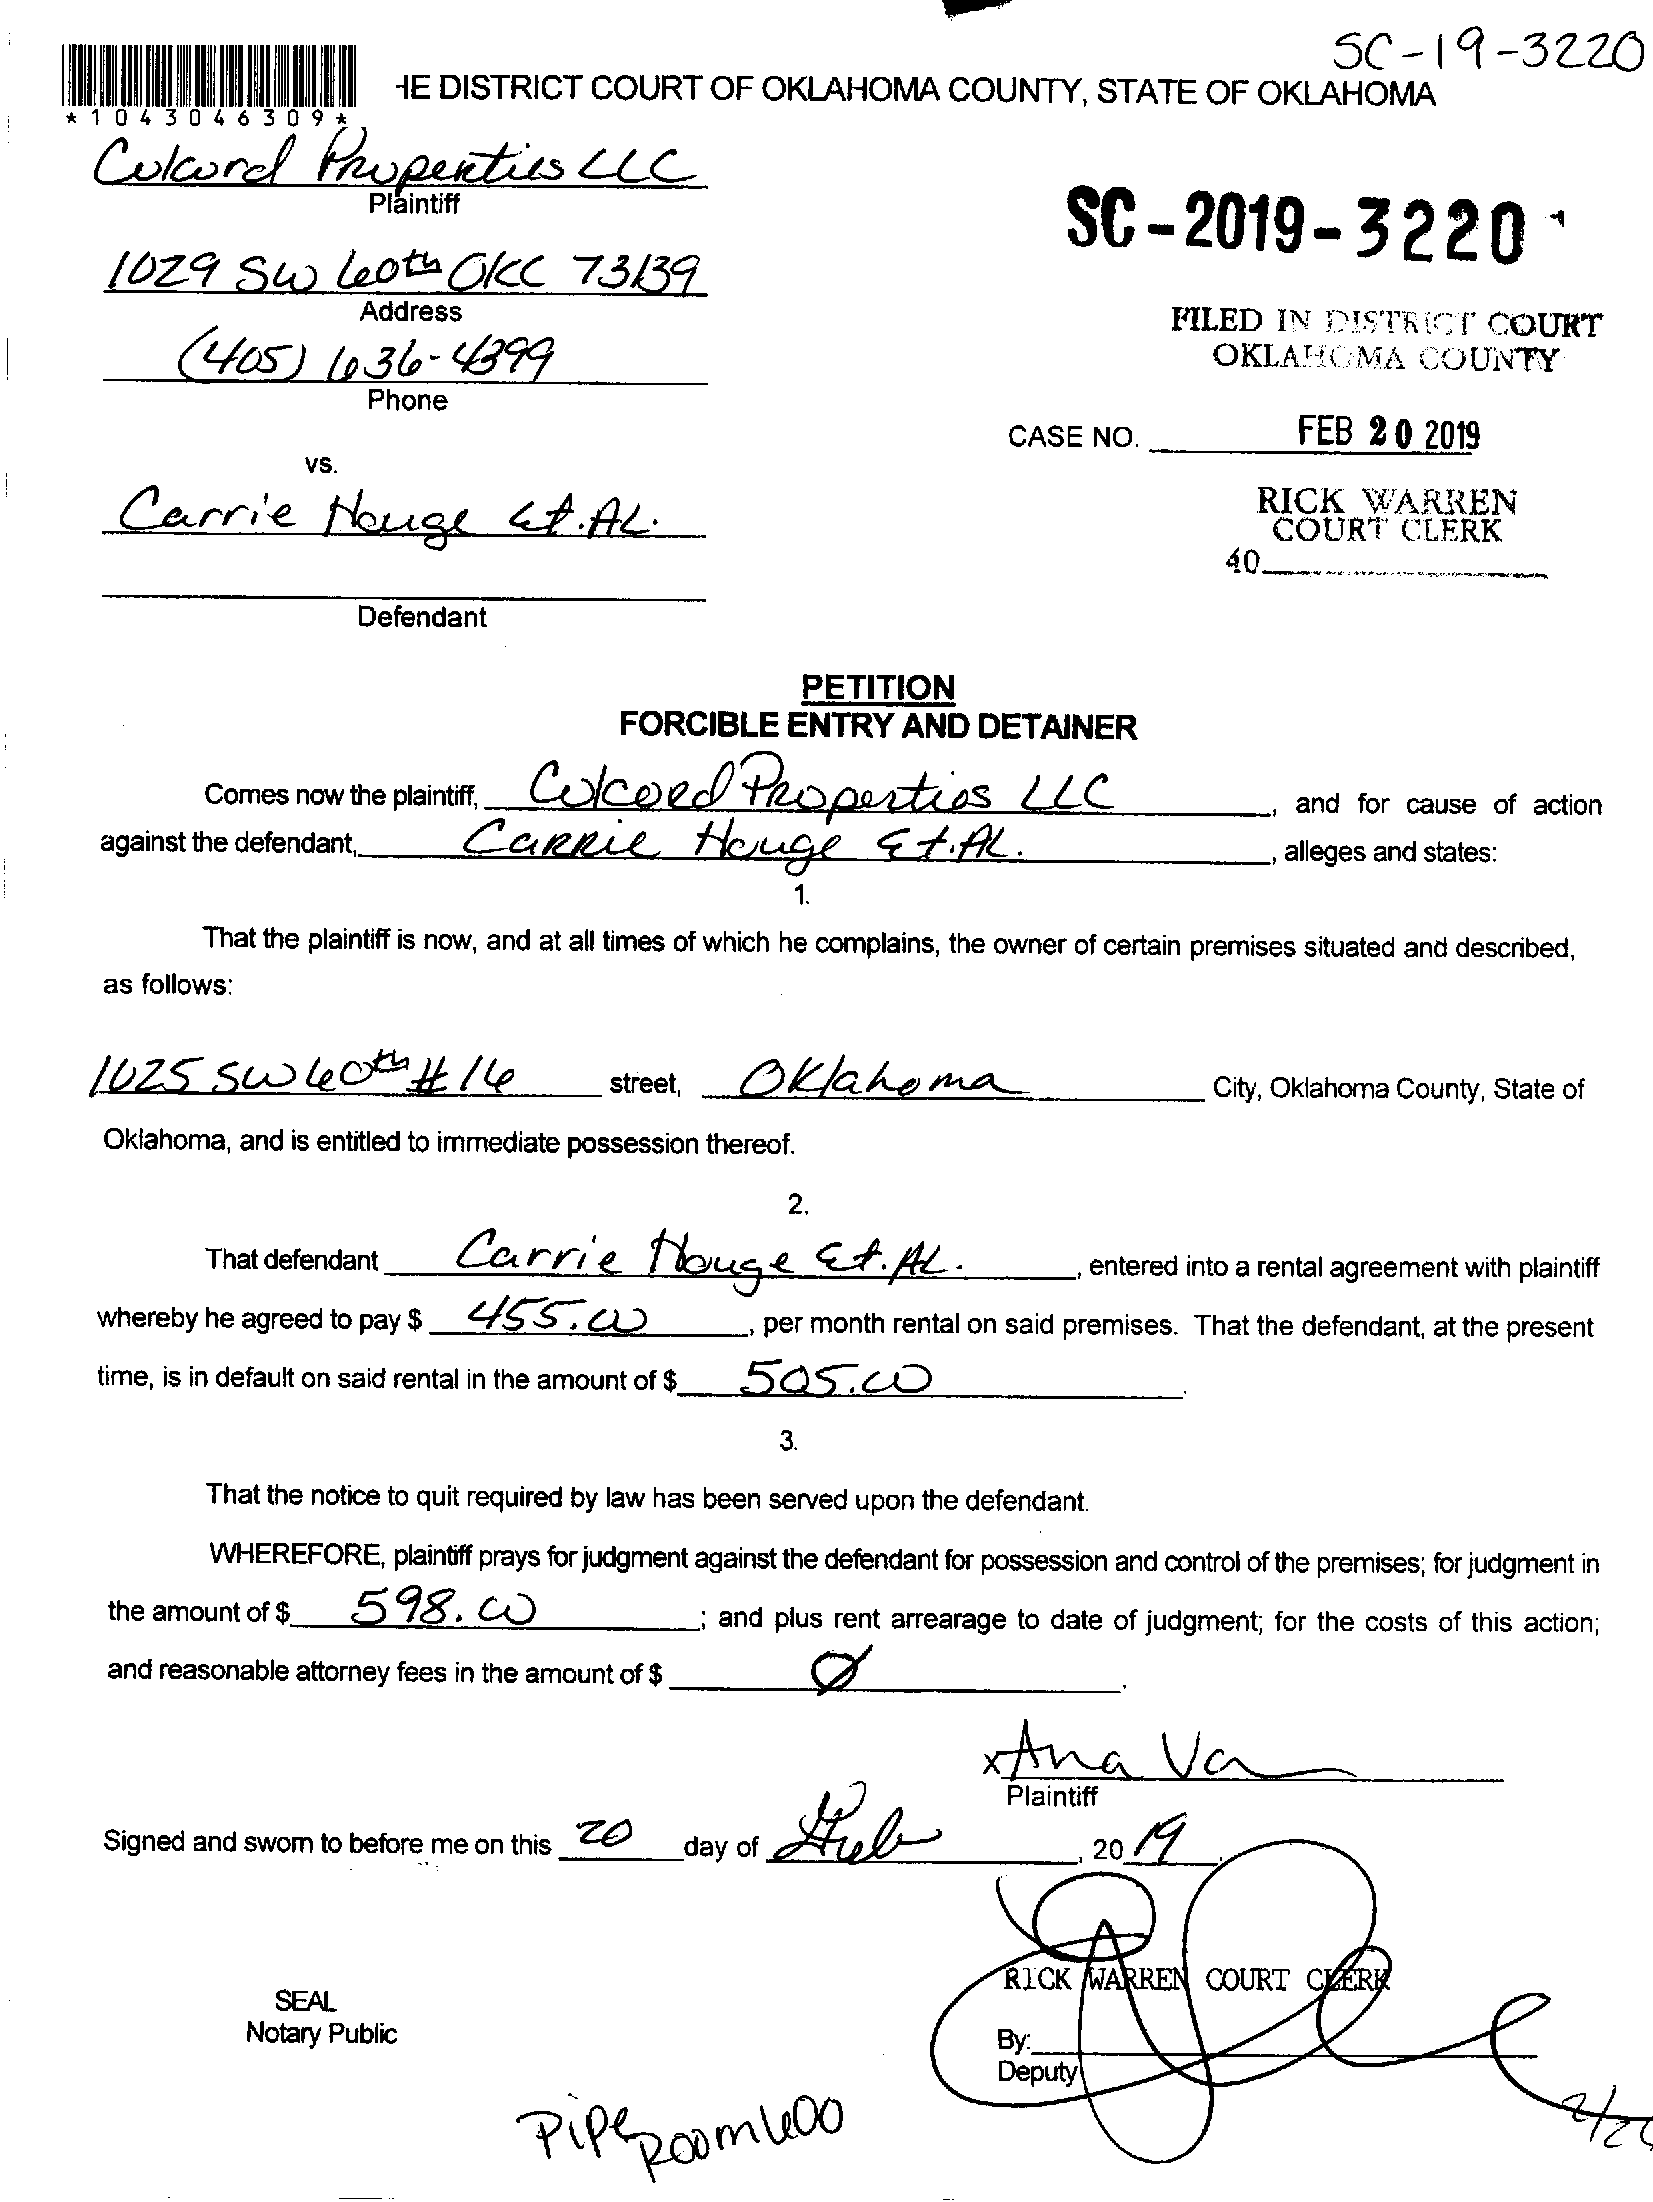 SC-19-3220
*1043046309*
HE DISTRICT COURT OF OKLAHOMA COUNTY, STATE OF OKLAHOMA
Colcord Properties LLC
Plaintiff
SC-2019-3220
1029 SW 60th OKC 73139
Address
FILED IN DISTRICT COURT
OKLAHOMA COUNTY
(405) 636-4399
Phone
CASE NO. FEB 20 2019
vs.
RICK WARREN
COURT CLERK
Carrie Houge Et.AL.
40
Defendant
PETITION
FORCIBLE ENTRY AND DETAINER
Comes now the plaintiff, Colcord Properties LLC, and for cause of action
against the defendant, Carrie Houge Et.AL., alleges and states:
1.
That the plaintiff is now, and at all times of which he complains, the owner of certain premises situated and described,
as follows:
1025 SW 60th #16 street, Oklahoma City, Oklahoma County, State of
Oklahoma, and is entitled to immediate possession thereof.
2.
That defendant Carrie Houge Et.AL., entered into a rental agreement with plaintiff
whereby he agreed to pay $ 455.00, per month rental on said premises. That the defendant, at the present
time, is in default on said rental in the amount of $ 505.00.
3.
That the notice to quit required by law has been served upon the defendant.
WHEREFORE, plaintiff prays for judgment against the defendant for possession and control of the premises; for judgment in
the amount of $ 598.00; and plus rent arrearage to date of judgment; for the costs of this action;
and reasonable attorney fees in the amount of $ Ø.
x Ana
Plaintiff
Signed and sworn to before me on this 20 day of Feb, 2019.
RICK WARREN COURT CLERK
SEAL
Notary Public
By:
Deputy
Pipe
Room 600